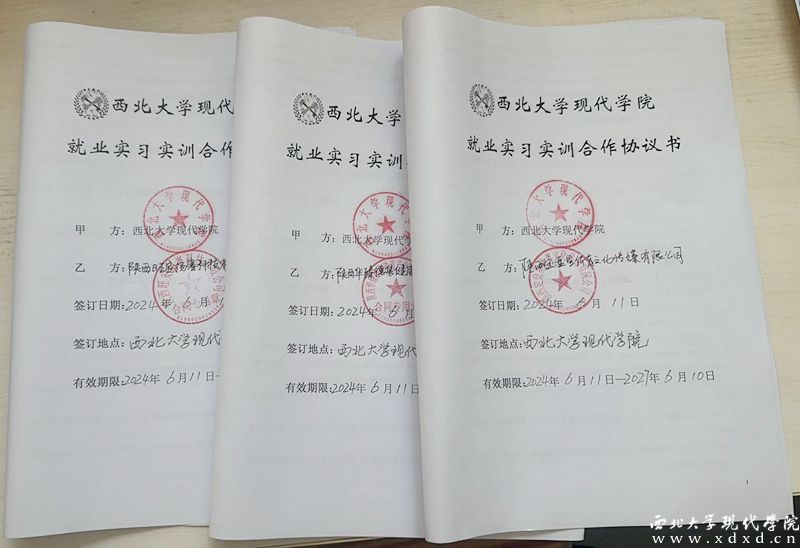 西北大学现代
就业实习实训合作
甲 方：西北大学现代学院
乙 方：陕西旺
签订日期：2024年 6 月 1
签订地点：西北大学现代
有效期限：2024年 6月11日—
西北大学
就业实习实训
甲 方：西北大学现代学
乙 方：陕西华
签订日期：2024年 6
签订地点：西北大学现代
有效期限：2024年 6月11日
合同专用章
西北大学现代学院
就业实习实训合作协议书
西北大学现代学院
甲 方：西北大学现代学院
乙 方：陕西 文化传媒有限公司
签订日期：2024年 6 月 11日
签订地点：西北大学现代学院
有效期限：2024年 6月11日—2027年 6月10日
1
西北大学现代学院
www.xdxd.cn